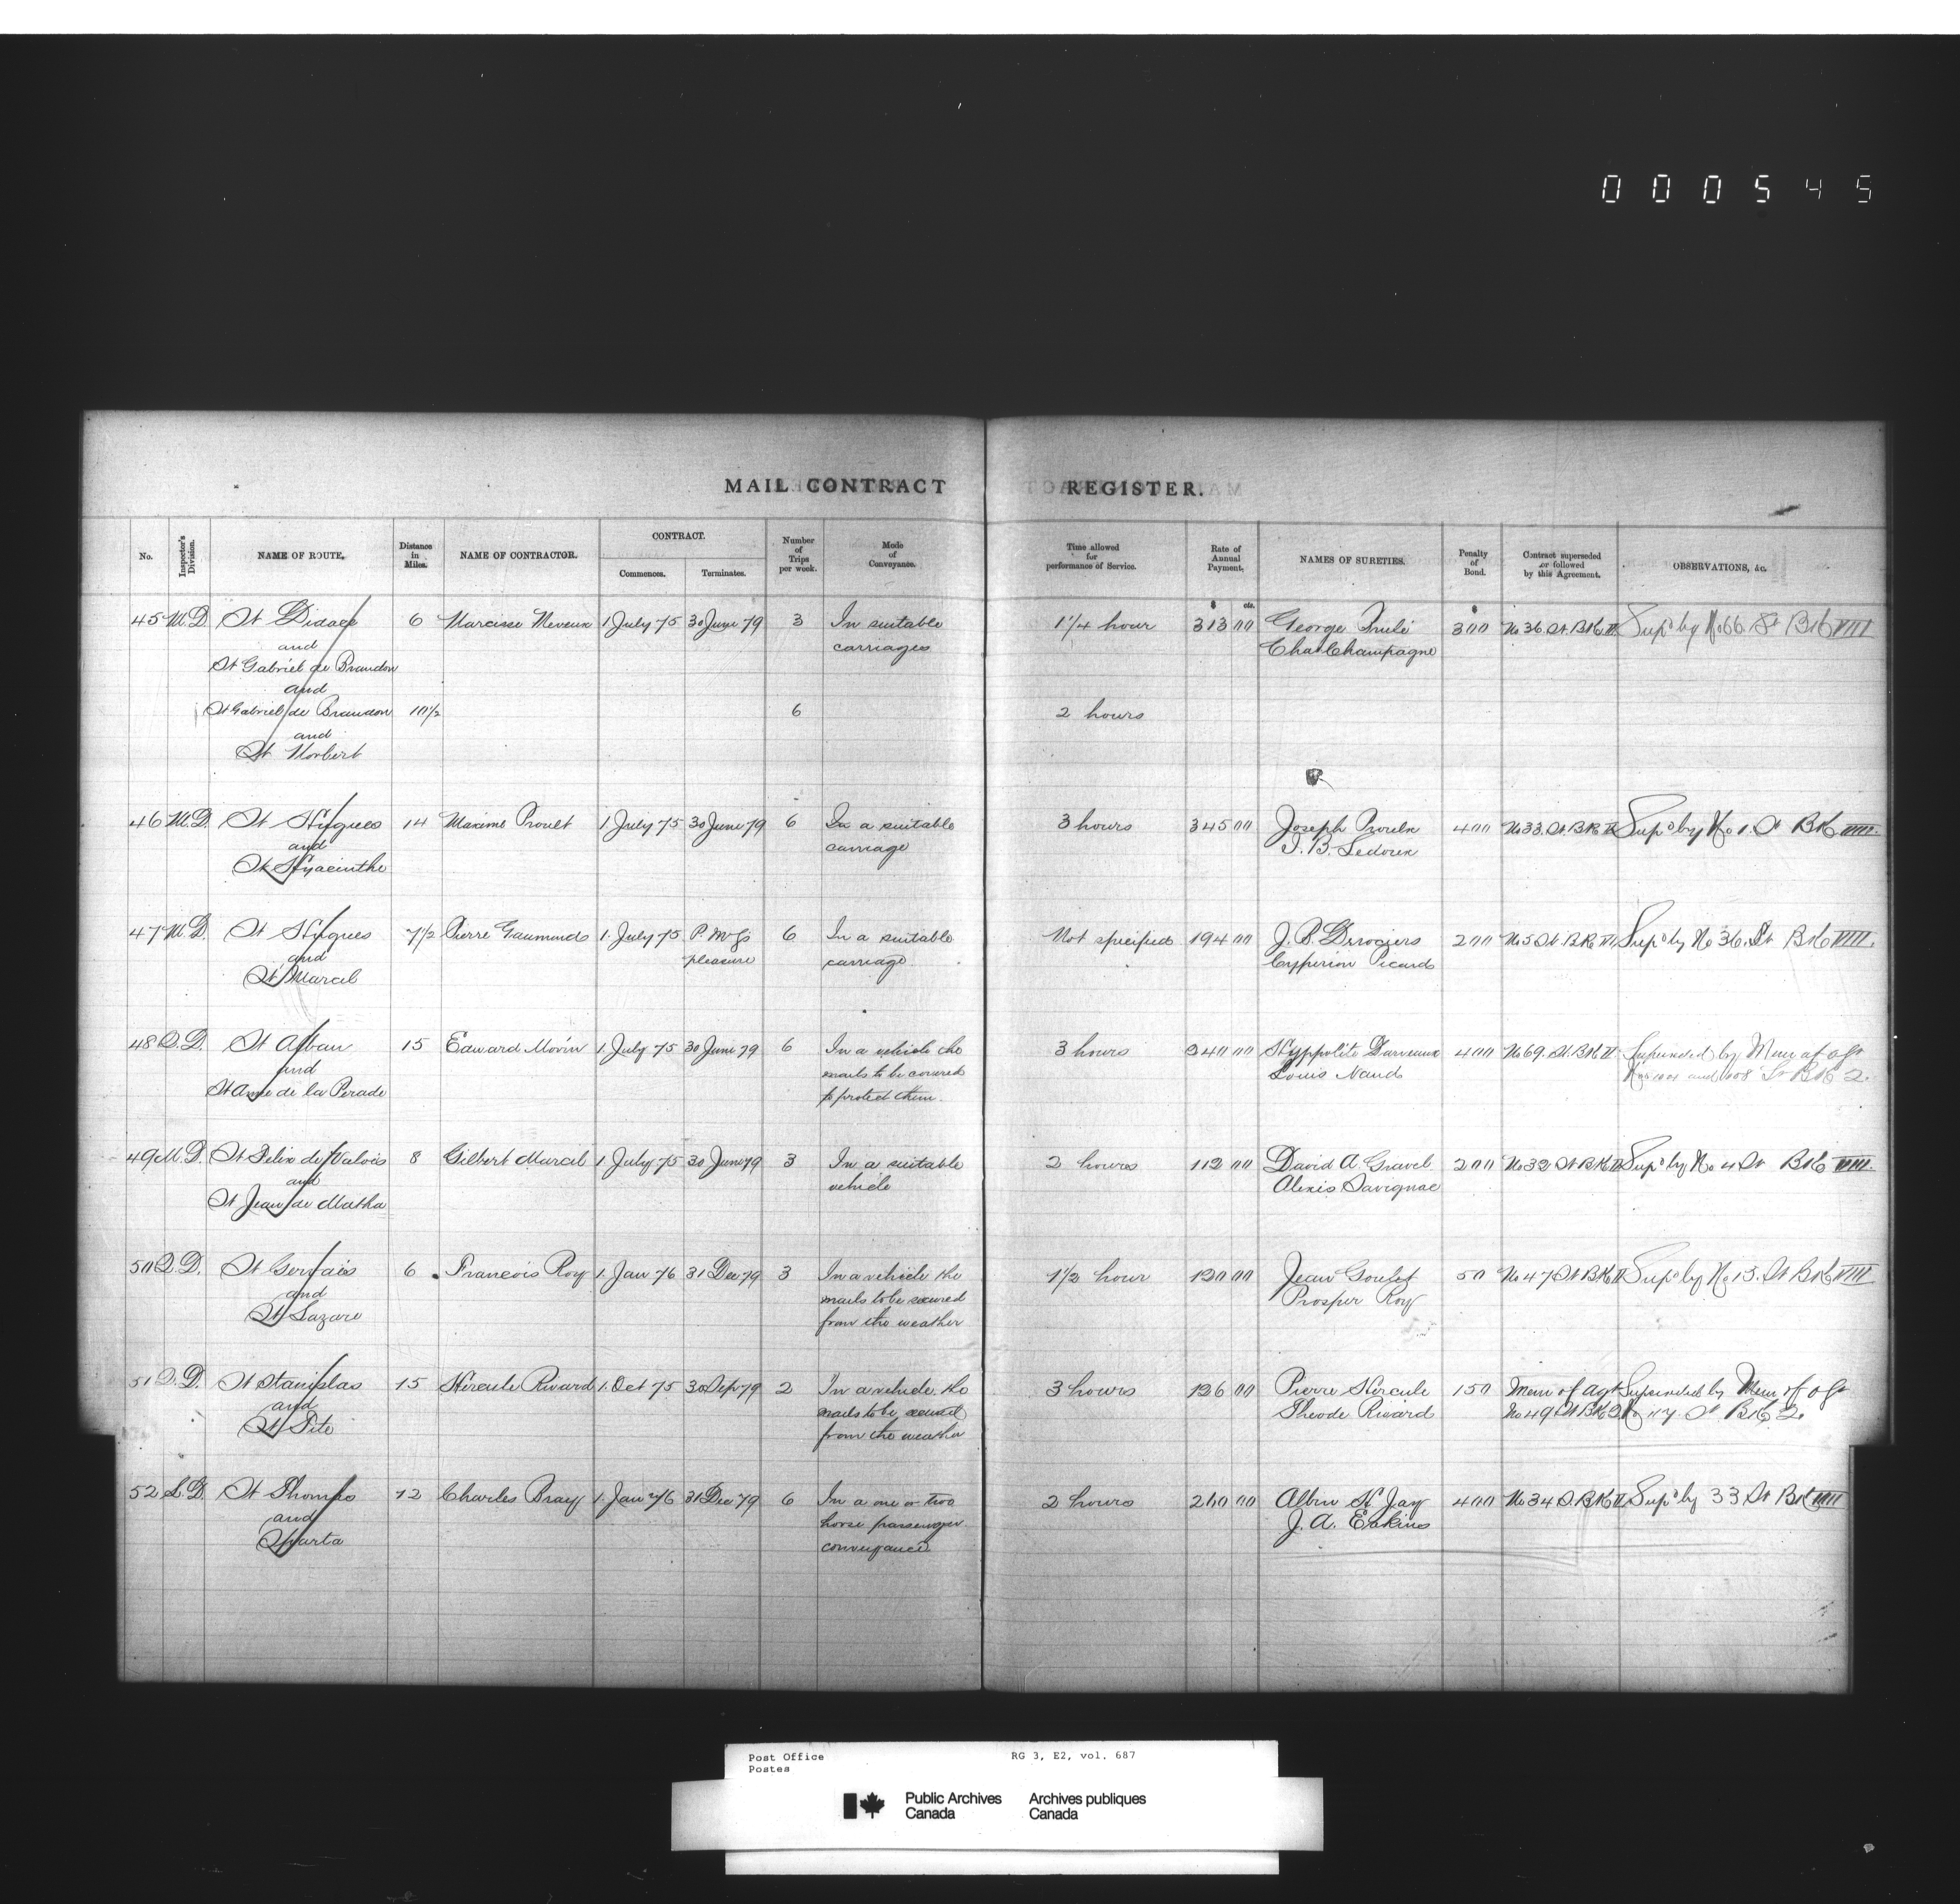 000545
MAIL CONTRACT REGISTER.
No. Inspector's Division. NAME OF ROUTE. Distance in Miles. NAME OF CONTRACTOR. CONTRACT. Commences. Terminates. Number of Trips per week. Mode of Conveyance. Time allowed for performance of Service. Rate of Annual Payment. NAMES OF SURETIES. Penalty of Bond. Contract superseded or followed by this Agreement. OBSERVATIONS, &c.
$ cts. $
45 M.D. St Didace 6 Narcisse 1 July 75 30 June 79 3 In suitable 1¼ hour 313 00 George 300 No 36 St. Bk II Sup'd by No 66 St Bk VIII
and carriages Chas Champagne
St Gabriel de Brandon
and
St Gabriel de Brandon 10½ 6 2 hours
and
St Norbert
46 M.D. St Hugues 14 Maxime Proult 1 July 75 30 June 79 6 In a suitable 3 hours 345 00 Joseph Proulx 400 No 33 St. Bk II Sup'd by No 1. St Bk VIII.
and carriage J. B. Ledoux
St Hyacinthe
47 M.D. St Hugues 7½ Pierre 1 July 75 P. M. G's 6 In a suitable Not specified 194 00 J. B. 200 No 5 St. Bk VI Sup'd by No 36. St Bk VIII.
and pleasure carriage Picard
St Marcel
48 Q.D. St Alban 15 Edward Morin 1 July 75 30 June 79 6 In a vehicle the 3 hours 340 00 Hyppolite Darveaux 400 No 69. St. Bk II Superseded by Mem of agt
and mails to be covered Louis Naud and 108 St Bk 2.
St Anne de la Perade to protect them.
49 M.D. St Felix de Valois 8 Gilbert Marcil 1 July 75 30 June 79 3 In a suitable 2 hours 112 00 David A. Gravel 200 No 32 St Bk II Sup'd by No 4 St Bk VIII.
and vehicle Alexis Savignac
St Jean de Matha
50 Q.D. St Gervais 6 Francois Roy 1 Jan 76 31 Dec 79 3 In a vehicle the 1½ hour 120 00 Jean Goulet 50 No 47 St Bk II Sup'd by No 13. St Bk VIII
and mails to be secured Prosper Roy
St Lazare from the weather
51 Q.D. St Stanislas 15 Hercule Rivard 1 Oct 75 30 Sep 79 2 In a vehicle the 3 hours 126 00 Pierre Hercule 150 Mem of agt Superseded by Mem of agt
and mails to be secured Theode Rivard No 49 St Bk 2 No 117 St Bk 2.
St Tite from the weather
52 L.D. St Thomas 12 Charles Bray 1 Jan 76 31 Dec 79 6 In a one or two 2 hours 260 00 Albin St Jay 400 No 34 S. Bk II Sup'd by 33 St Bk VIII
and horse passenger J. A. Eakins
Sparta conveyance
Post Office RG 3, E2, vol. 687
Postes
Public Archives Archives publiques
Canada Canada